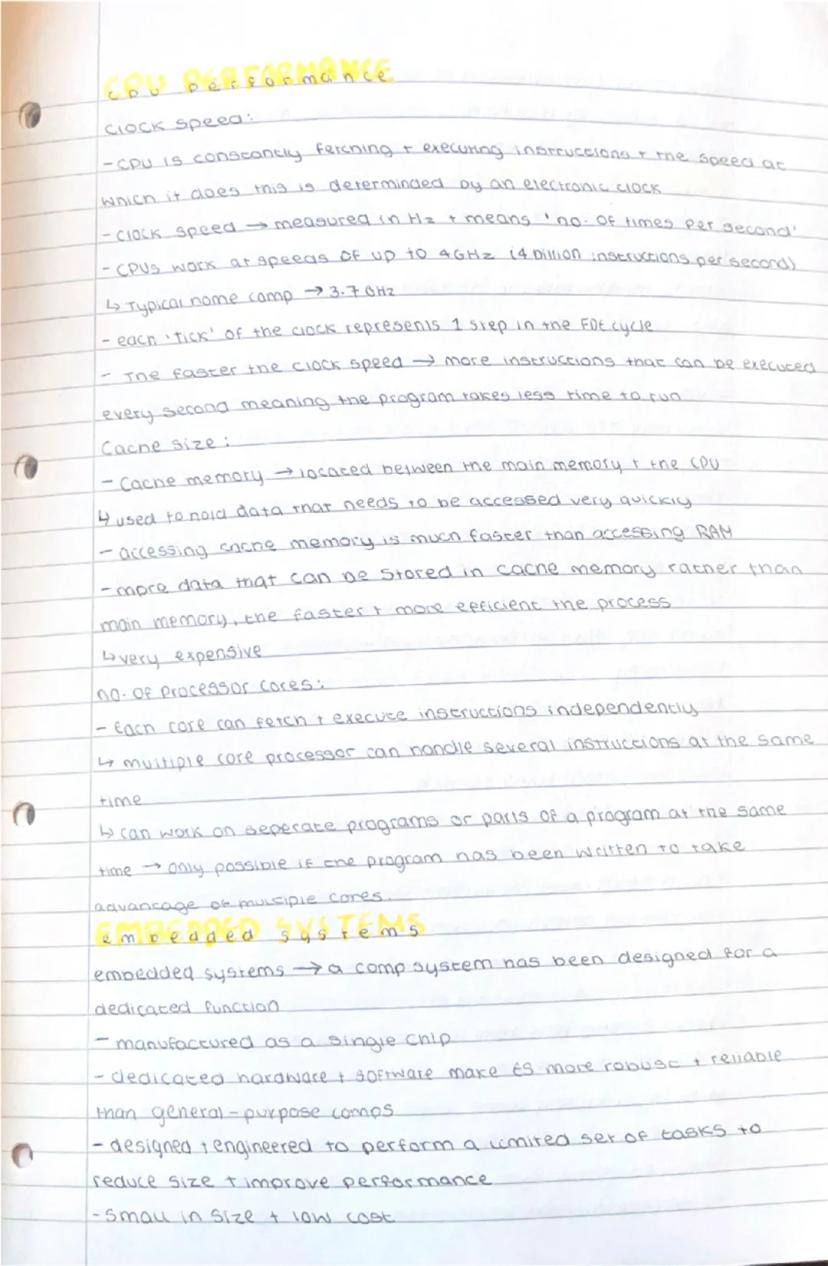 CPU PERFORMANCE
cpu performance
clock speed:
- CPU is constantly fetching + executing instructions + the speed at
which it does this is determinded by an electronic clock
- clock speed → measured in Hz + means 'no. of times per second'
- CPUs work at speeds of up to 4GHz (4 billion instructions per second)
↳ Typical home comp → 3.7 GHz
- each 'tick' of the clock represents 1 step in the FDE cycle
- The faster the clock speed → more instructions that can be executed
every second meaning the program takes less time to run
Cache size:
- Cache memory → located between the main memory + the CPU
↳ used to hold data that needs to be accessed very quickly
- accessing cache memory is much faster than accessing RAM
- more data that can be stored in cache memory rather than
main memory, the faster + more efficient the process
↳ very expensive
no. of processor cores:
- Each core can fetch + execute instructions independently
↳ multiple core processor can handle several instructions at the same
time
↳ can work on seperate programs or parts of a program at the same
time → only possible if the program has been written to take
advantage of multiple cores.
EMBEDDED SYSTEMS
embedded systems
embedded systems → a comp system has been designed for a
dedicated function
- manufactured as a single chip
- dedicated hardware + software make ES more robust + reliable
than general-purpose comps
- designed + engineered to perform a limited set of tasks to
reduce size + improve performance
- small in size + low cost